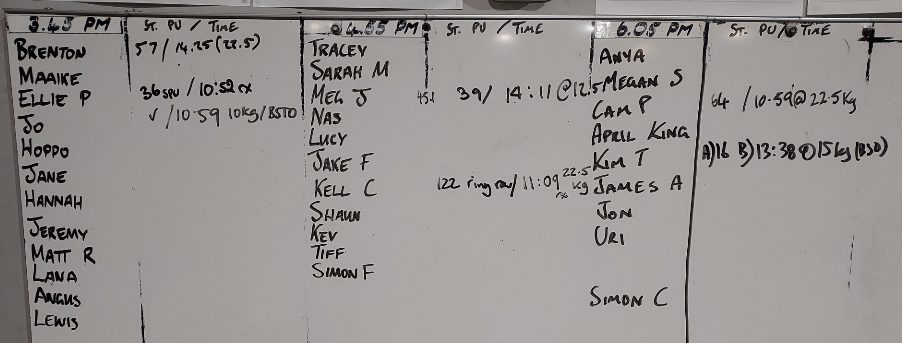 3.45 PM ST. PU / TIME
BRENTON 57 / 14.25 (22.5)
MAAIKE
ELLIE P 36 SPU / 10:52 rx
JO √ / 10:59 10kg / BSTO
HOPPO
JANE
HANNAH
JEREMY
MATT R
LANA
ANGUS
LEWIS
04.55 PM ST. PU / TIME
TRACEY
SARAH M
MEG J 39 / 14:11 @ 12.5
NAS
LUCY
JAKE F
KELL C 122 ring row / 11:09 22.5 kg rx
SHAUN
KEV
TIFF
SIMON F
6.05 PM ST. PU / TIME
ANYA
MEGAN S
CAM P 64 / 10.59 @ 22.5kg
APRIL KING
KIM T A) 16 B) 13:38 @ 15kg (BSD)
JAMES A
JON
URI
SIMON C